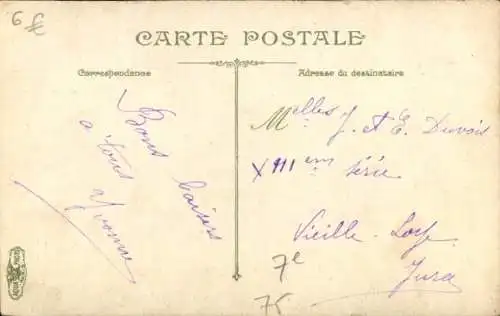 6 €
CARTE POSTALE
Correspondance
Adresse du destinataire
Bons baisers
à tous
Yvonne
Melles J. et E.
XIII em série
Vieille-Loye
Jura
7e
75